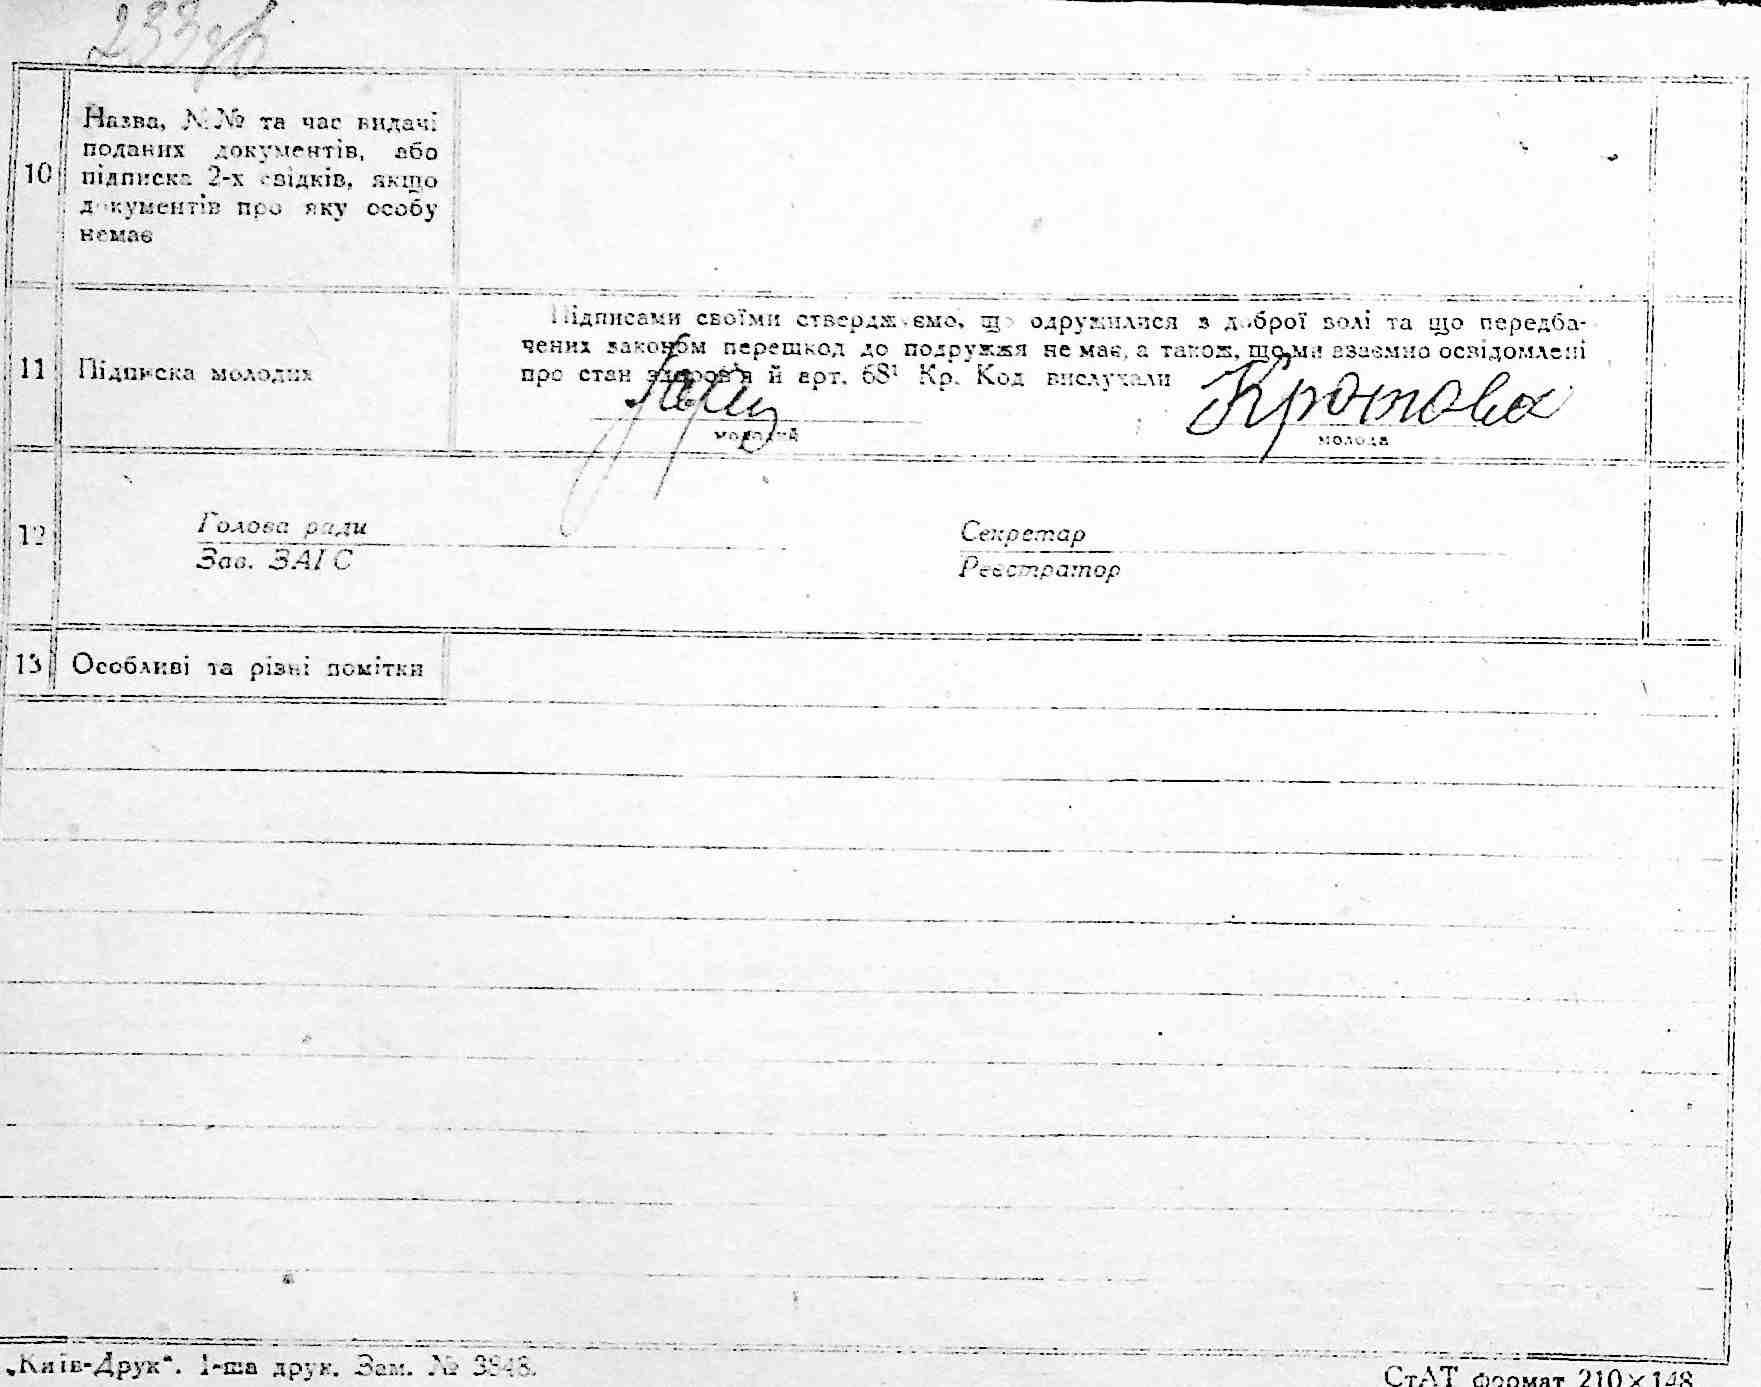 233
10
Назва, №№ та час видачі
поданих документів, або
підписка 2-х свідків, якщо
документів про яку особу
немає
11
Підписка молодих
Підписами своїми стверджуємо, що одружилися з доброї волі та що передба-
чених законом перешкод до подружжя не має, а також, що ми взаємно освідомлені
про стан здоров'я й арт. 68¹ Кр. Код вислухали
Кротова
молодий
молода
12
Голова ради
Зав. ЗАГС
Секретар
Реєстратор
13
Особливі та різні помітки
„Київ-Друк“. 1-ша друк. Зам. № 3848.
СтАТ формат 210×148